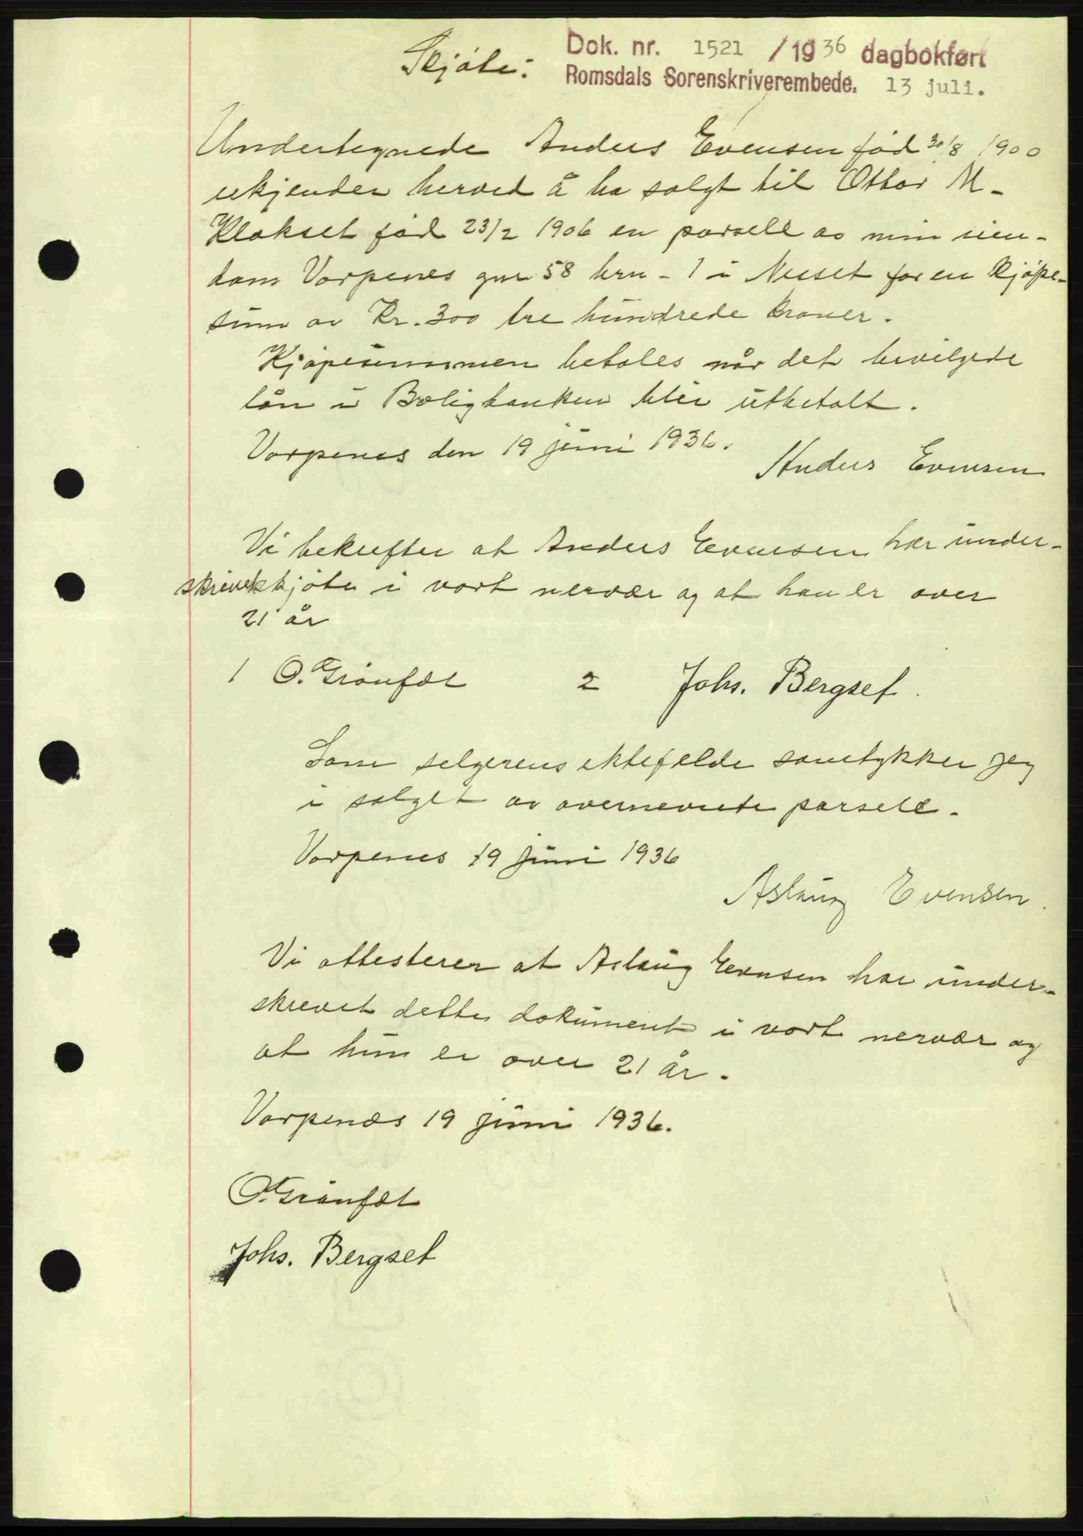 Skjøte:
Dok. nr. 1521 /1936 dagbokført
Romsdals Sorenskriverembede. 13 juli.
Undertegnede Anders Evensen fød 30/8 1900
erkjender herved å ha solgt til Ottar M-
Klokset fød 23/2 1906 en parsell av min eien-
dom Vorpenes gnr 58 brn - 1 i Nesset for en kjøpe-
sum av Kr. 300 tre hundrede kroner.
Kjøpesummen betales når det bevilgede
lån i Boligbanken blir utbetalt.
Vorpenes den 19 juni 1936.
Anders Evensen
Vi bekrefter at Anders Evensen har under-
skrevet skjøte i vort nervær og at han er over
21 år
1 O. Grønfdt 2 Johs. Bergset.
Som selgerens ektefelde samtykker jeg
i salget av overnevnte parsell.
Vorpenes 19 juni 1936
Aslaug Evensen.
Vi attesterer at Aslaug Evensen har under-
skrevet dette dokument i vort nervær og
at hun er over 21 år.
Vorpenæs 19 juni 1936.
Johs. Bergset